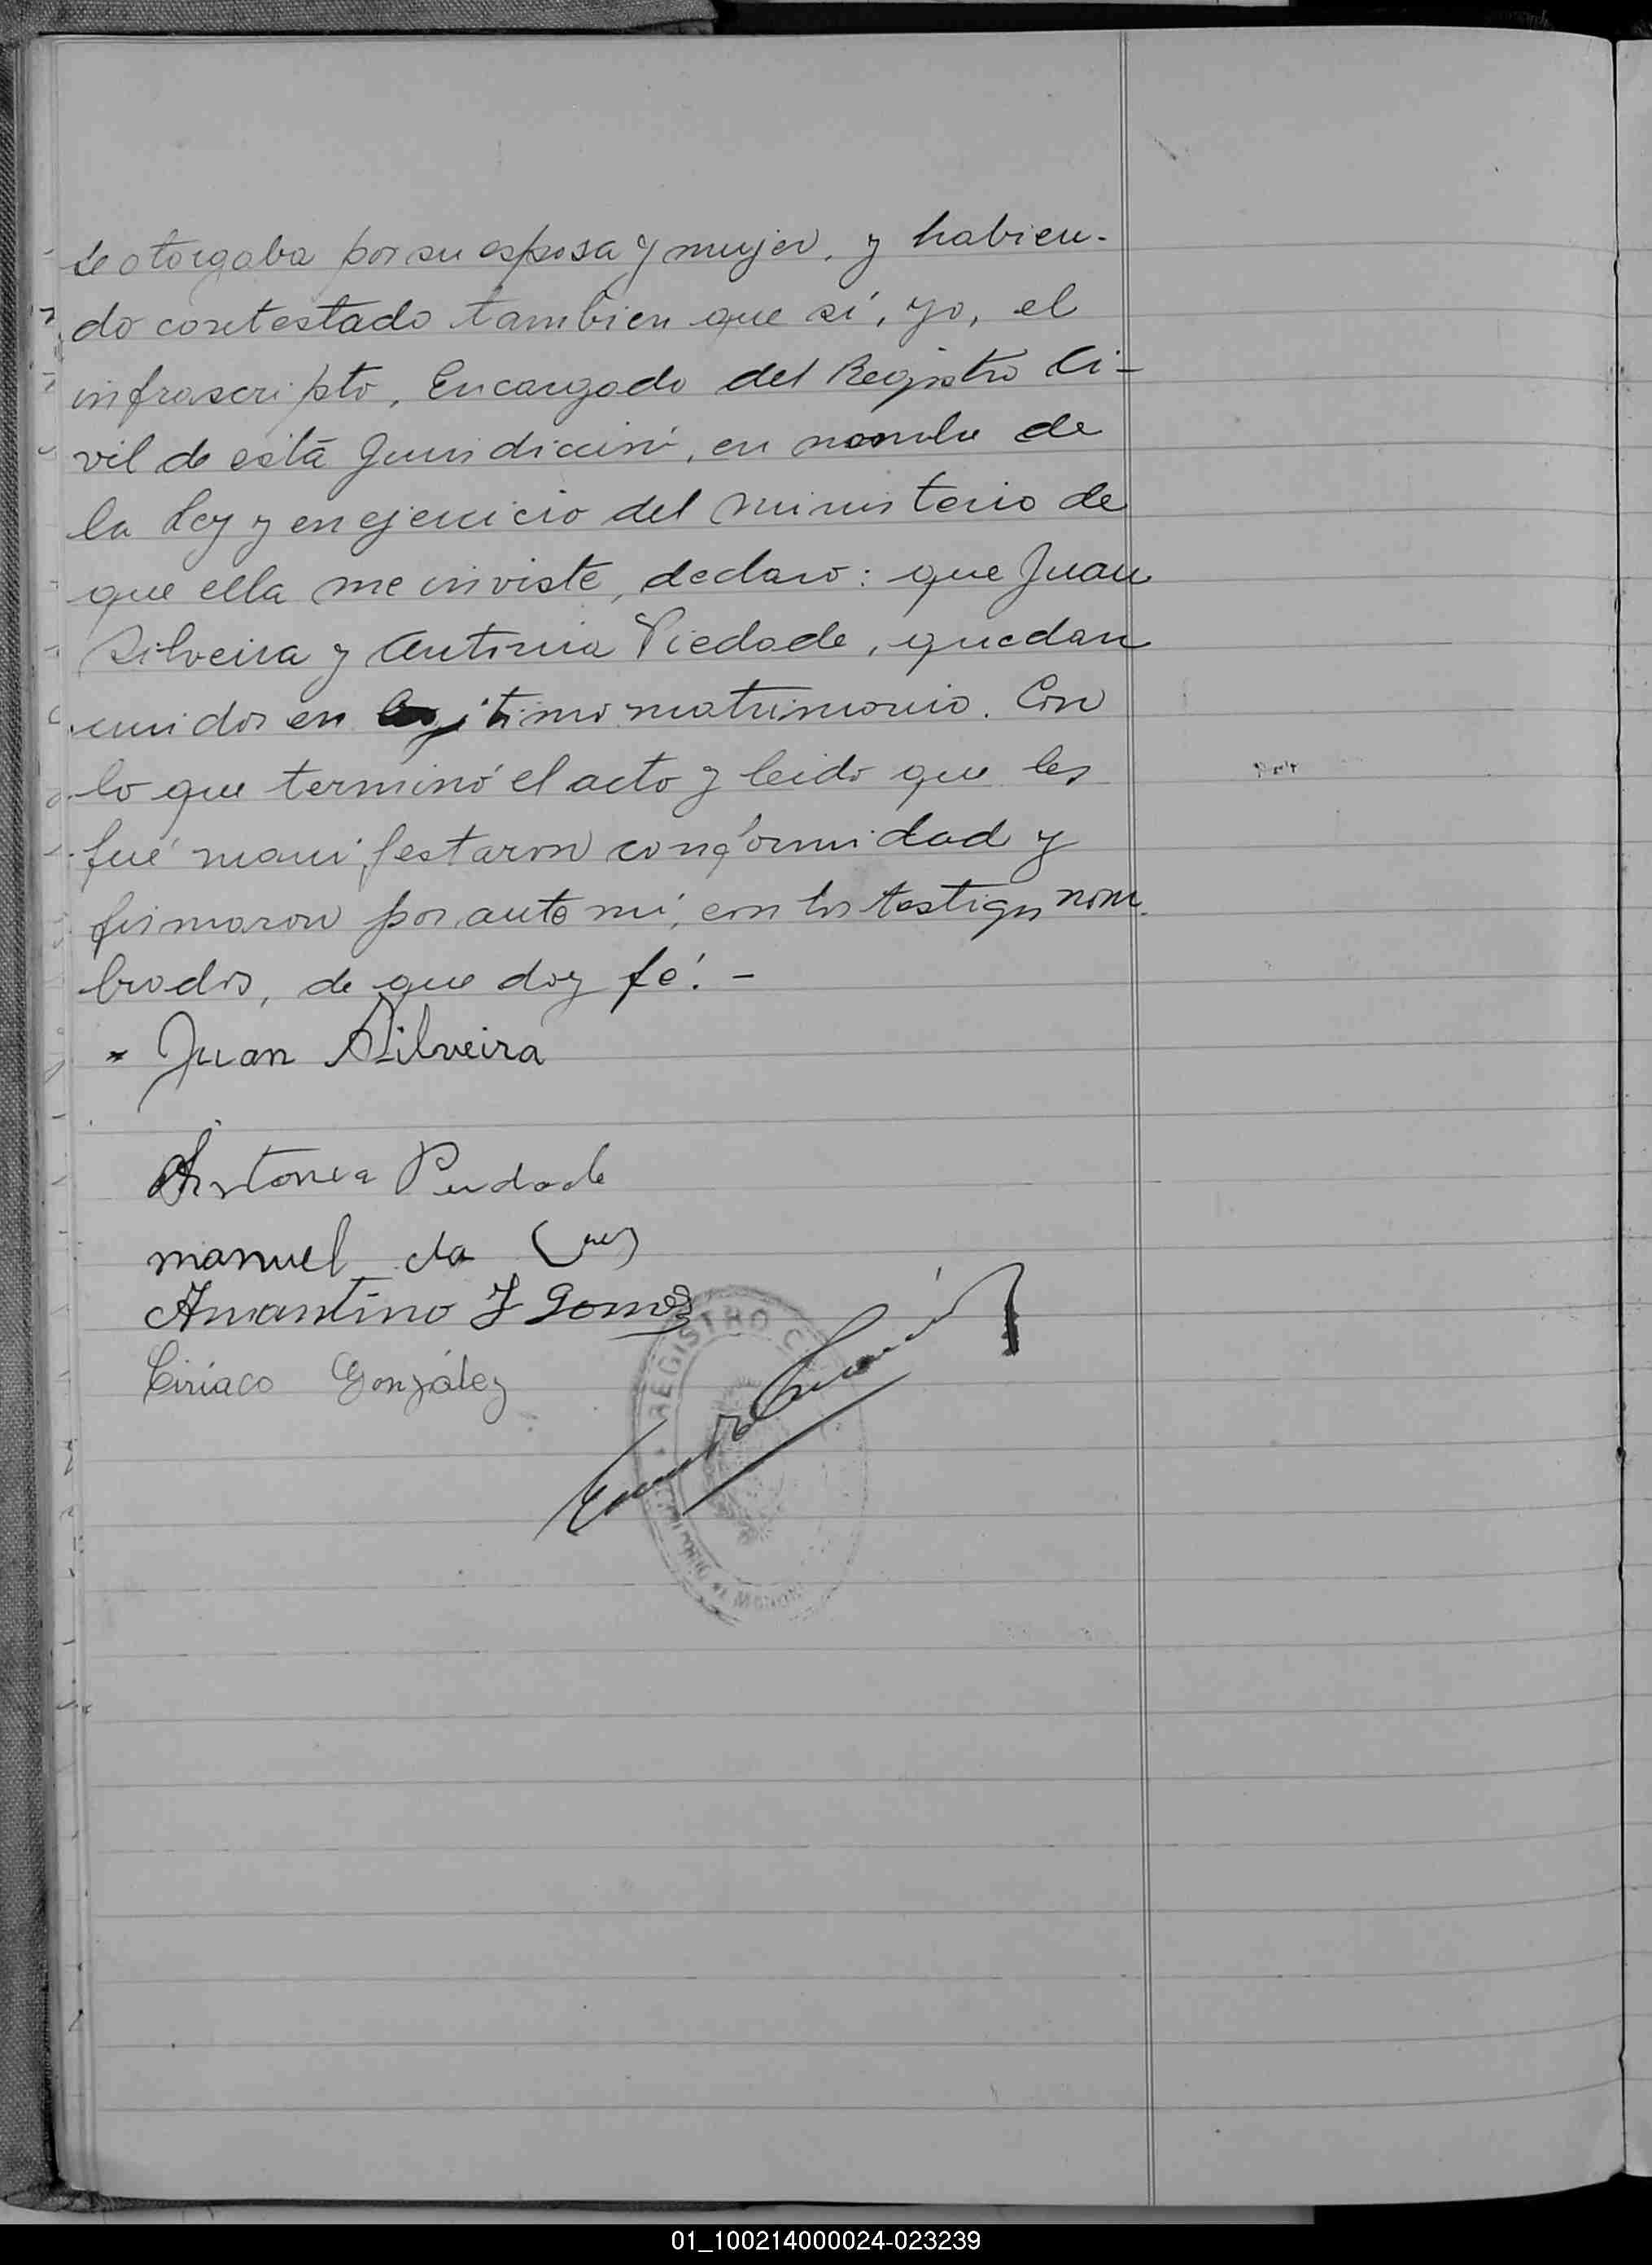 se otorgaba por su esposa y mujer, y habien-
do contestado tambien que sí, yo, el
infrascripto, Encargado del Registro Ci-
vil de esta Jurisdicción, en nombre de
la Ley y en ejercicio del ministerio de
que ella me inviste, declaro: que Juan
Silveira y Antonia Piedade, quedan
unidos en legitimo matrimonio. Con
lo que terminó el acto y leido que les
fué manifestaron conformidad y
firmaron por ante mí, con los testigos nom-
brados, de que doy fé. -
Juan Silveira
Antonia Piedade
manuel da Cruz
Amantino J Gomes
Ciriaco González
REGISTRO
01_100214000024-023239